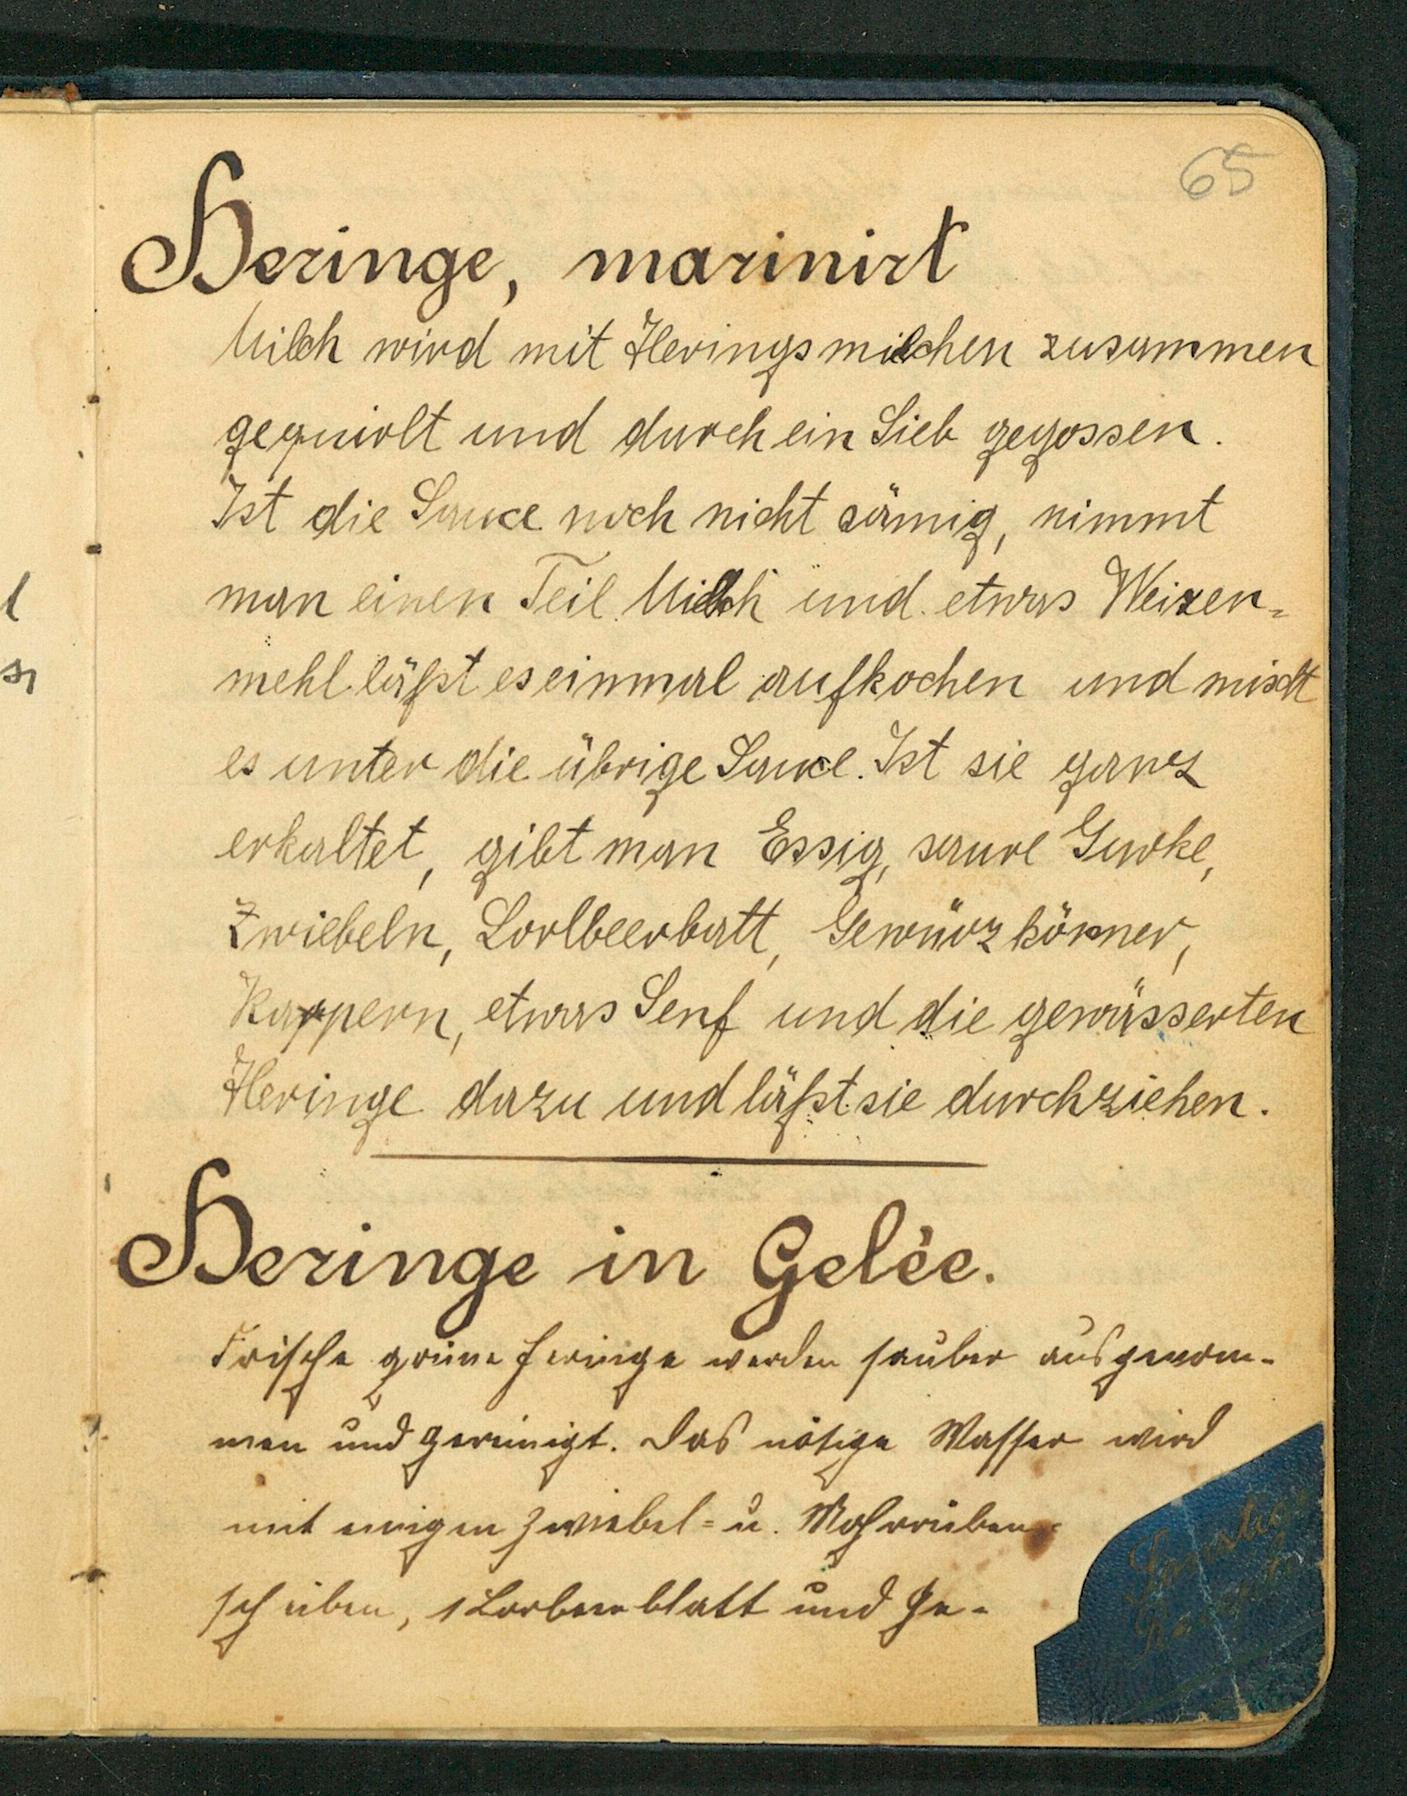 65
Heringe, marinirt
Milch wird mit Heringsmilchen zusammen
gequirlt und durch ein Sieb gegossen.
Ist die Sauce noch nicht sämig, nimmt
man einen Teil Milch und etwas Weizen=
mehl läßt es einmal aufkochen und mischt
es unter die übrige Sauce. Ist sie ganz
erkaltet, gibt man Essig, saure Gurke,
Zwiebeln, Lorlbeerbatt, Gewürzkörner,
Kappern, etwas Senf und die gewässerten
Heringe dazu und läßt sie durchziehen.
Heringe in Gelée.
Frische grüne Heringe werden sauber ausgenom-
men und gereinigt. Das nötige Wasser wird
mit einigen Zwiebel= u. Mohrrüben=
scheiben, 1 Lorbeerblatt und Ge-